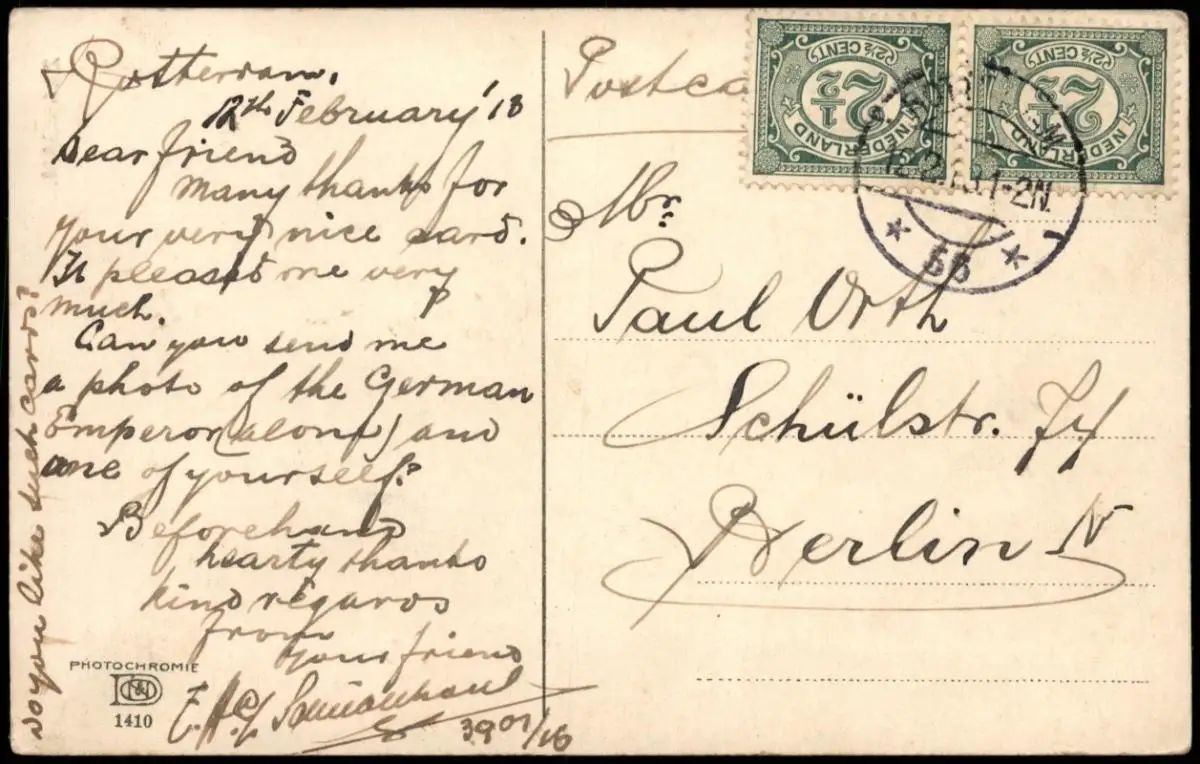 Rotterdam.
12th February '13
Dear friend
many thanks for
your very nice card.
It pleased me very
much.
Can you send me
a photo of the German
Emperor (alone) and
one of yourself?
Beforehand
hearty thanks
kind regards
from
your friend
Do you like such cards?
PHOTOCHROMIE
1410
Mr.
Paul Orth
Schülstr.
Berlin N
2½ CENT
2½
NEDERLAND
2½ CENT
2½
NEDERLAND
1-2N.